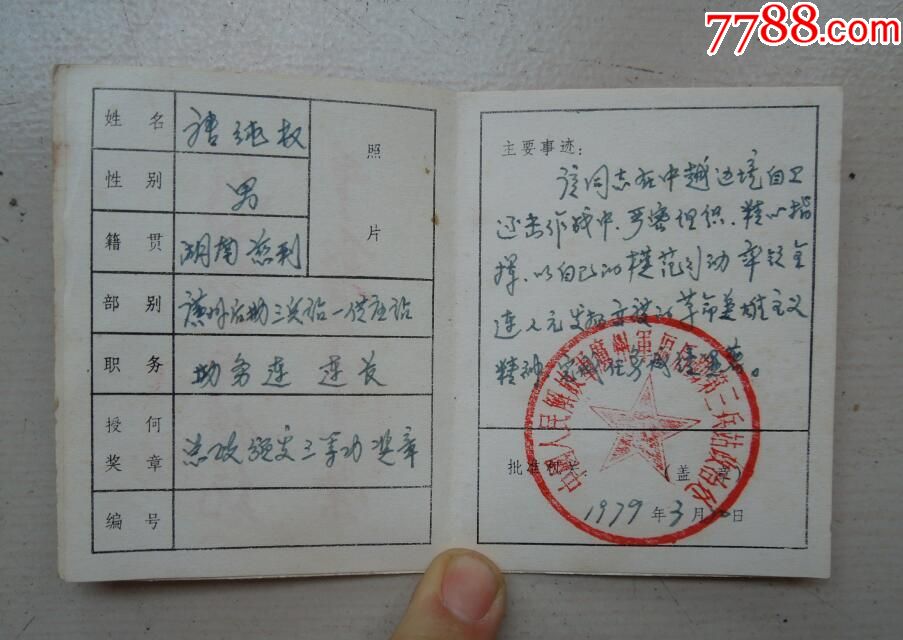 7788.com
姓名 唐纯权
照片
性别 男
籍贯 湖南慈利
部别 广州后勤三兵站一供应站
职务 勤务连 连长
授何奖章 总政颁发三等功奖章
编号
主要事迹:
该同志在中越边境自卫
还击作战中,严密组织、精心指
挥,以自己的模范行动率领全
连人员发扬 革命英雄主义
精神,
批准机关 (盖章)
1979年3月 日
中国人民解放军广州军区后勤部第三兵站政治处